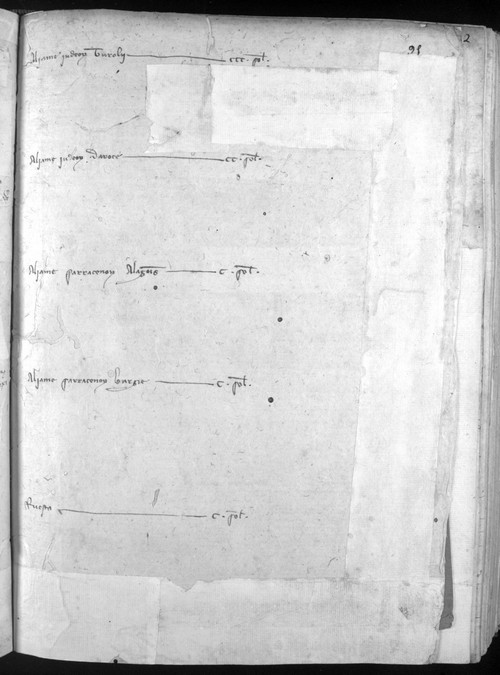 2
91
Aljame judeorum Turolii ccc. sol.
Aljame judeorum Daroce cc. sol.
Aljame sarracenorum c. sol.
Aljame sarracenorum Burgie c. sol.
Ruepa c. sol.